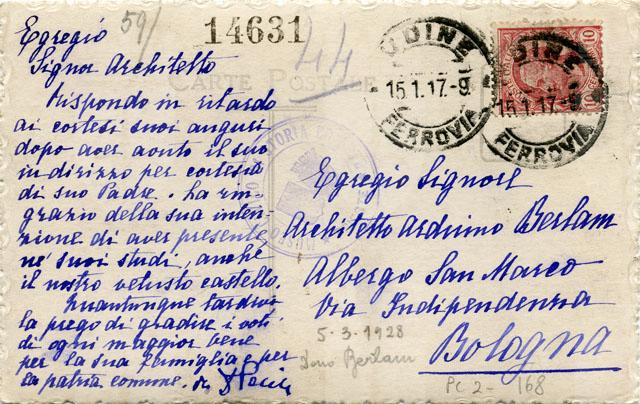 Egregio
59/
14631
44
Signor Architetto
CARTE POSTALE
Rispondo in ritardo
ai cortesi suoi auguri
dopo aver avuto il suo
indirizzo per cortesia
di suo Padre. La rin-
grazio della sua inten-
zione di aver presente,
ne' suoi studi, anche
il nostro vetusto castello.
Quantunque tardivi
la prego di gradire i voti
di ogni maggior bene
per la sua famiglia e per
la patria comune.
UDINE
15.1.17-9
FERROVIA
UDINE
15.1.17-9
FERROVIA
10
10
Egregio Signore
Architetto Arduino Berlam
Albergo San Marco
Via Indipendenza
Bologna
5-3-1928
Dono Berlam
PC 2- 168